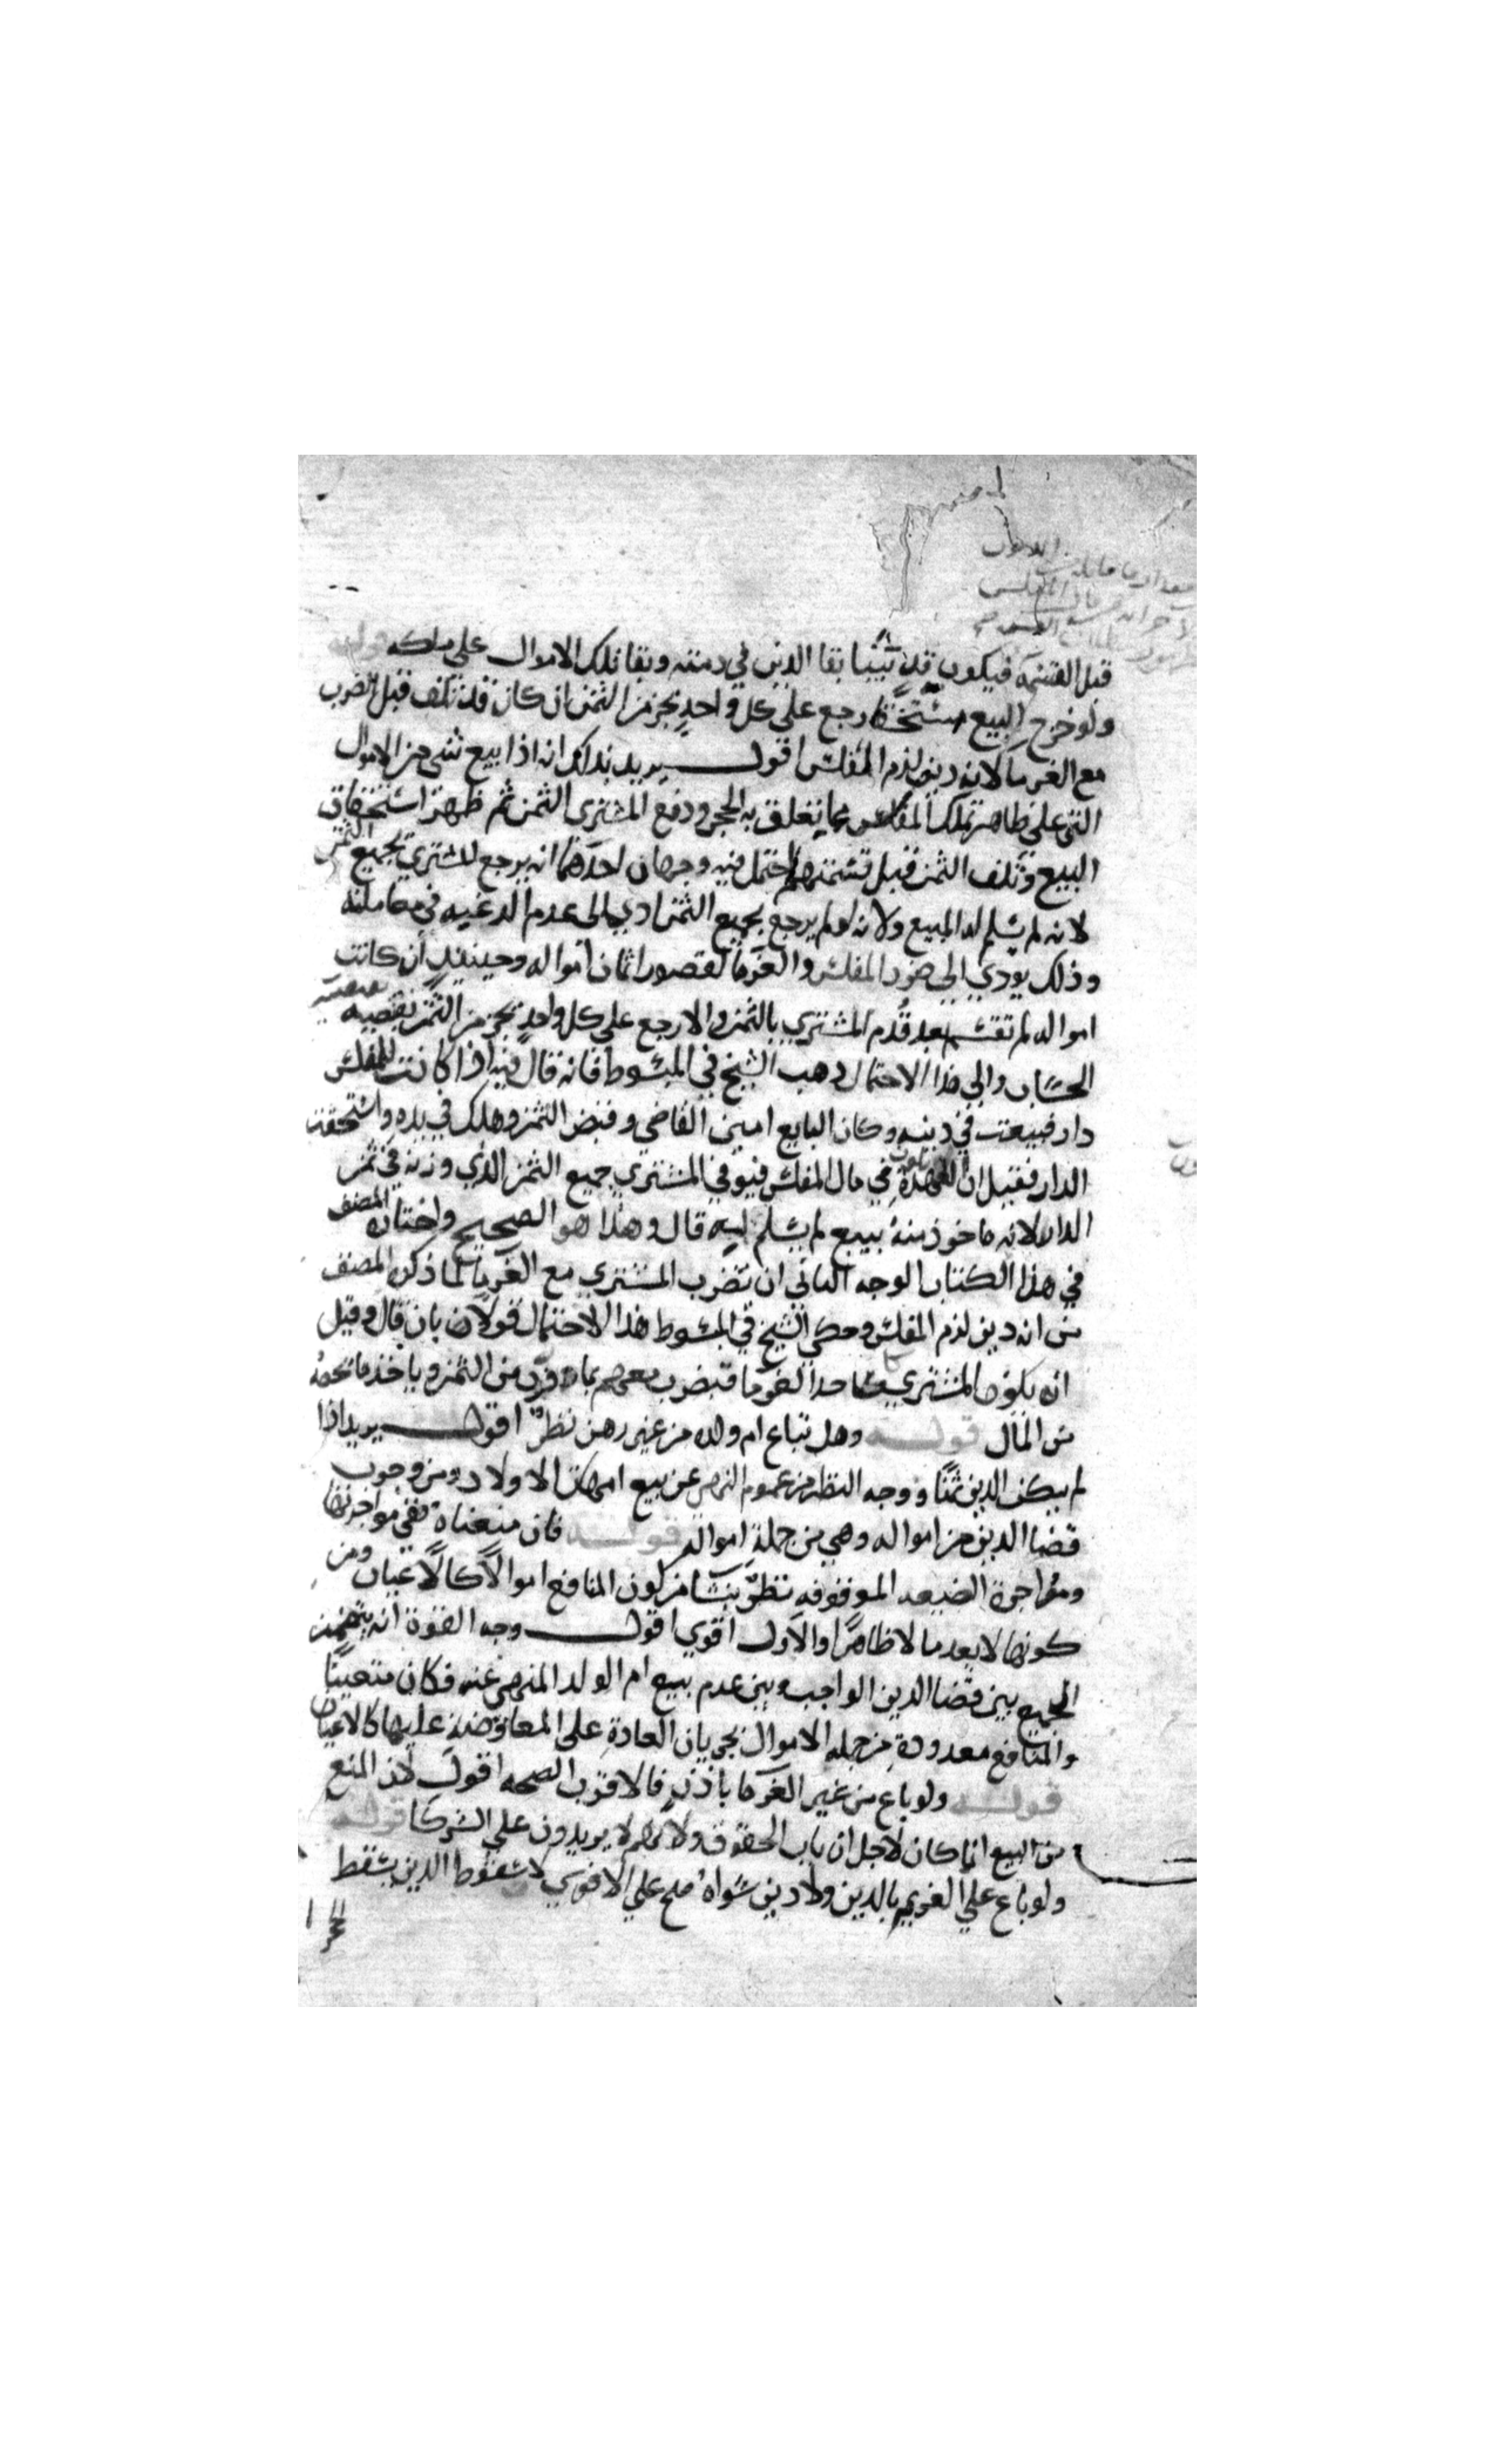 قبل القسمة فيكون قد ثبتا بقا الدين في ذمته وبقا تلك الاموال علي ملكه قوله
ولو خرج المبيع مستحقا رجع علي كل واحد بجزء من الثمن ان كان قد تلف قبل يضرب
مع الغرما لانه دين لزم المفلس اقول يريد بذلك انه اذا بيع شي من الاموال
التي علي ظاهر تملك المفلس مما يتعلق به الحجر ودفع المشتري الثمن ثم ظهر استحقاق
المبيع وتلف الثمن قبل قسمته احتمل فيه وجهان احدهما انه يرجع المشتري بجميع الثمن
لانه لم يسلم له المبيع ولانه لو لم يرجع بجميع الثمن ادي الى عدم الرغبه في معاملته
وذلك يودي الي ضرر المفلس والغرما لقصور اثمان امواله وحينئذ ان كانت
امواله لم تقسم بعد قدم المشتري بالثمن والا رجع علي كل واحد بجزء من الثمن
الحساب والي هذا الاحتمال ذهب الشيخ في المبسوط فانه قال فيه اذا كانت للمفلس
دار فبيعت في دينه وكان البايع امين القاضي وقبض الثمن وهلك في يده واستحقت
الدار فقيل ان العهدة تكون في مال المفلس فيوفي المشتري جميع الثمن الذي وزنه في ثمن
الدار لانه ماخوذ منه ببيع لم يسلم اليه قال وهذا هو الصحيح واختاره المصنف
في هذا الكتاب الوجه الثاني ان يضرب المشتري مع الغرما لما ذكره المصنف
من انه دين لزم المفلس وحكي الشيخ في المبسوط هذا الاحتمال قولا بان قال وقيل
انه يكون المشتري كاحد الغرما فيضرب معهم بما وزن من الثمن وياخذ ما يخصه
من المال قوله وهل تباع ام ولده من غير رهن نظر اقول يريد اذا
لم يكن الدين ثمنا ووجه النظر من عموم النهي عن بيع امهات الاولاد ومن وجوب
قضا الدين من امواله وهي من جملة امواله قوله فان منعناه ففي مواجرتها
ومواجرة الضيعه الموقوفه نظر ينشا من كون المنافع اموالا كالاعيان ومن
كونها لا يعد مالا ظاهرا والاول اقوي اقول وجه القوة انه يتضمن
الجمع بين قضا الدين الواجب وبين عدم بيع ام الولد المنهي عنه فكان متعينا
والمنافع معدودة من جمله الاموال بجريان العادة علي المعاوضة عليها كالاعيان
قوله ولو باع من غير الغرما باذنهم فالاقرب الصحه اقول لان المنع
من البيع انما كان لاجل ارباب الحقوق ولانهم لا يزيدون علي الشركا قوله
ولو باع علي الغريم بالدين ولا دين سواه صح علي الاقوي لسقوط الدين بسقط
الحجر